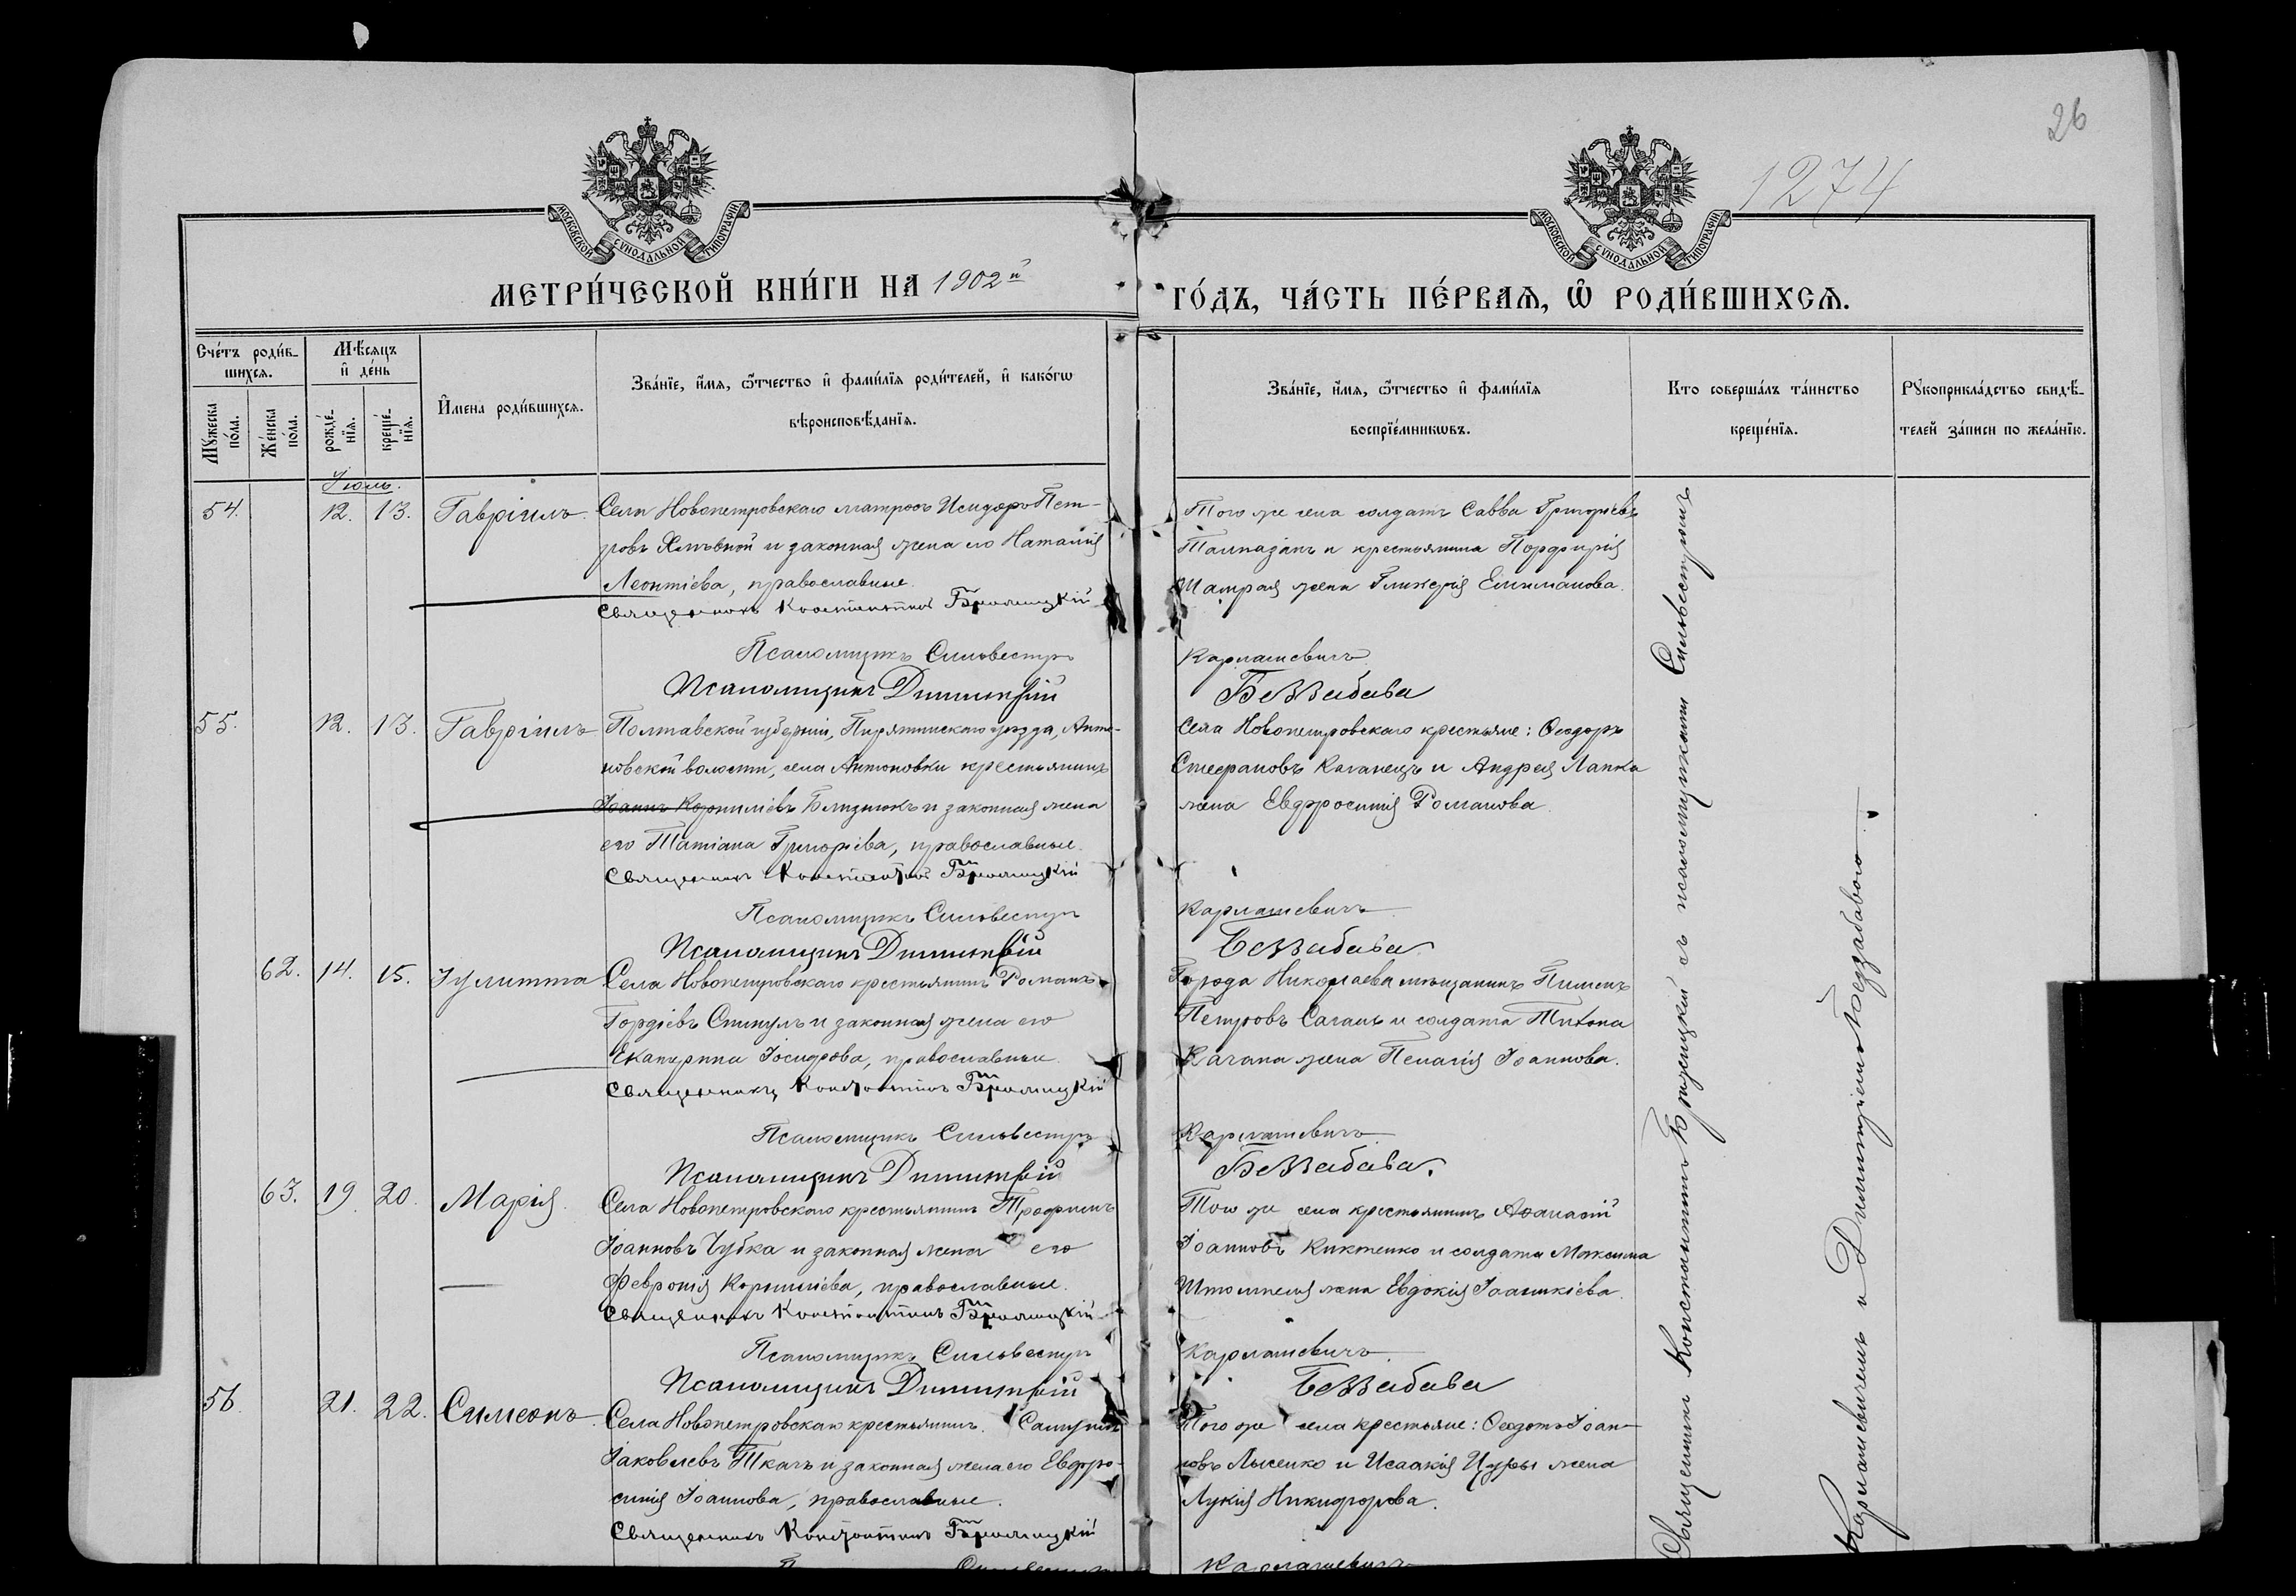 26
1274
МОСКОВСКОЙ СѴНОДАЛЬНОЙ ТИПОГРАФІИ
МОСКОВСКОЙ СѴНОДАЛЬНОЙ ТИПОГРАФІИ
МЕТРИ́ЧЕСКОЙ КНИ́ГИ НА 1902й
ГО́ДЪ, ЧА́СТЬ ПЕ́РВАѦ, Ѽ РОДИ́ВШИХСѦ.
Сче́тъ роди́в-
шихсѧ.
Мѣ́сѧцъ
и҆ де́нь
Мꙋ́жеска
по́ла.
Же́нска
по́ла.
рожде́-
нїѧ.
креще́-
нїѧ.
И҆мена роди́вшихсѧ.
Зва́нїе, и҆́мѧ, ѻ҆́тчество и҆ фами́лїѧ роди́телей, и҆ како́гѡ
вѣроисповѣ́данїѧ.
Зва́нїе, и҆́мѧ, ѻ҆́тчество и҆ фами́лїѧ
воспрїе́мникѡвъ.
Кто соверша́лъ та́инство
креще́нїѧ.
Рꙋкоприкла́дство свидѣ́-
телей за́писи по жела́нїю.
Іюль.
54. 12. 13. Гавріилъ.
Села Новопетровскаго матросъ Исидоръ Пет-
ровъ и законная жена его Наталія
Леонтіева, православные.
Священникъ Константинъ
Псаломщикъ Сильвестръ
Псаломщикъ Димитрій
Того же села солдатъ Савва Григорьевъ
и крестьянина Порфирія
жена Гликерія
Карлашевичъ
Беззабава
55. 12. 13. Гавріилъ
Полтавской губерніи, Пирятинскаго уѣзда, Анто-
новской волости, села Антоновки крестьянинъ
Іоаннъ Корниліевъ Близнюкъ и законная жена
его Татіана Григоріева, православные.
Священникъ Константинъ
Псаломщикъ Сильвестръ
Псаломщикъ Димитрій
Села Новопетровскаго крестьяне: Ѳеодоръ
Стефановъ Каганецъ и Андрея Лапка
жена Евфросинія Романова.
Карлашевичъ
Беззабава
62. 14. 15. Іулитта
Села Новопетровскаго крестьянинъ Романъ
Гордіевъ и законная жена его
Екатерина Исидорова, православные.
Священникъ Константинъ
Псаломщикъ Сильвестръ
Псаломщикъ Димитрій
Города Николаева мѣщанинъ Пименъ
Петровъ Саганъ и солдата Титона
Качана жена Пелагія Іоаннова.
Карлашевичъ
Беззабава.
63. 19. 20. Марія.
Села Новопетровскаго крестьянинъ Трофимъ
Іоанновъ Чубка и законная жена его
Февронія Корниліева, православные.
Священникъ Константинъ
Псаломщикъ Сильвестръ
Псаломщикъ Димитрій
Того же села крестьянинъ Аѳанасій
Іоанновъ Киктенко и солдата Максима
жена Евдокія Іоанникіева.
Карлашевичъ.
Беззабава
56. 21. 22. Симеонъ.
Села Новопетровскаго крестьянинъ
Іаковлевъ Ткачъ и законная жена его Евфро-
синія Іоаннова, православные.
Священникъ Константинъ
Того же села крестьяне: Ѳеодотъ Іоан-
новъ Лысенко и Исаакія жена
Лукія Никифорова.
Карлашевичъ
Священникъ Константинъ съ псаломщиками Сильвестромъ
Карлашевичемъ и Димитріемъ Беззабавою.